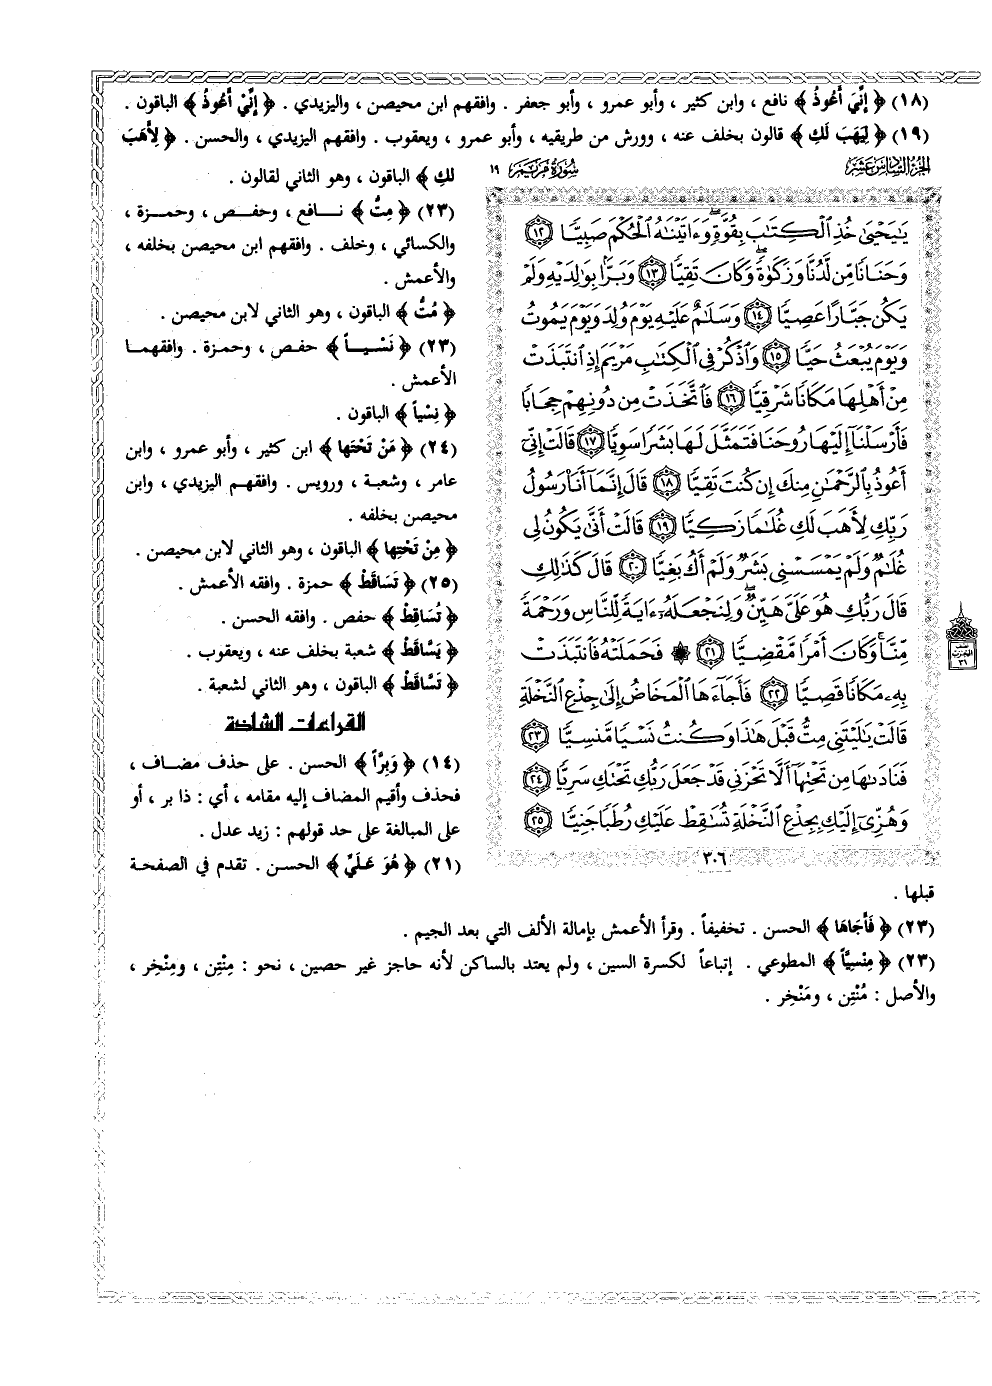 (١٨) ﴿ إِنِّيَ أَعُوذُ ﴾ نافع ، وابن كثير ، وأبو عمرو ، وأبو جعفر . وافقهم ابن محيصن ، واليزيدي . ﴿ إِنِّيْ أَعُوذُ ﴾ الباقون .
(١٩) ﴿ لِيَهَبَ لَكِ ﴾ قالون بخلف عنه ، وورش من طريقيه ، وأبو عمرو ، ويعقوب . وافقهم اليزيدي ، والحسن . ﴿ لِأَهَبَ
لَكِ ﴾ الباقون ، وهو الثاني لقالون .
(٢٣) ﴿ مِتُّ ﴾ نافع ، وحفص ، وحمزة ،
والكسائي ، وخلف . وافقهم ابن محيصن بخلفه ،
والأعمش .
﴿ مُتُّ ﴾ الباقون ، وهو الثاني لابن محيصن .
(٢٣) ﴿ نَسْياً ﴾ حفص ، وحمزة . وافقهما
الأعمش .
﴿ نِسْياً ﴾ الباقون .
(٢٤) ﴿ مَنْ تَحْتَها ﴾ ابن كثير ، وأبو عمرو ، وابن
عامر ، وشعبة ، ورويس . وافقهم اليزيدي ، وابن
محيصن بخلفه .
﴿ مِنْ تَحْتِها ﴾ الباقون ، وهو الثاني لابن محيصن .
(٢٥) ﴿ تَسَاقَطْ ﴾ حمزة . وافقه الأعمش .
﴿ تُسَاقِطْ ﴾ حفص . وافقه الحسن .
﴿ يَسَّاقَطْ ﴾ شعبة بخلف عنه ، ويعقوب .
﴿ تَسَّاقَطْ ﴾ الباقون ، وهو الثاني لشعبة .
القراءات الشاذة
(١٤) ﴿ وَبِرّاً ﴾ الحسن . على حذف مضاف ،
فحذف وأقيم المضاف إليه مقامه ، أي : ذا بر ، أو
على المبالغة على حد قولهم : زيد عدل .
(٢١) ﴿ هُوَ عَلَيِّ ﴾ الحسن . تقدم في الصفحة
قبلها .
(٢٣) ﴿ فَأَجَاهَا ﴾ الحسن . تخفيفاً . وقرأ الأعمش بإمالة الألف التي بعد الجيم .
(٢٣) ﴿ مِنْسِيّاً ﴾ المطوعي . إتباعاً لكسرة السين ، ولم يعتد بالساكن لأنه حاجز غير حصين ، نحو : مِنْتِن ، ومِنْخِر ،
والأصل : مُنْتِن ، ومَنْخِر .
الجزء السادس عشر
سورة مريم ١٩
يَٰيَحْيَىٰ خُذِ ٱلْكِتَٰبَ بِقُوَّةٍ وَءَاتَيْنَٰهُ ٱلْحُكْمَ صَبِيًّا ١٢
وَحَنَانًا مِّن لَّدُنَّا وَزَكَوٰةً وَكَانَ تَقِيًّا ١٣ وَبَرًّۢا بِوَٰلِدَيْهِ وَلَمْ
يَكُن جَبَّارًا عَصِيًّا ١٤ وَسَلَٰمٌ عَلَيْهِ يَوْمَ وُلِدَ وَيَوْمَ يَمُوتُ
وَيَوْمَ يُبْعَثُ حَيًّا ١٥ وَٱذْكُرْ فِى ٱلْكِتَٰبِ مَرْيَمَ إِذِ ٱنتَبَذَتْ
مِنْ أَهْلِهَا مَكَانًا شَرْقِيًّا ١٦ فَٱتَّخَذَتْ مِن دُونِهِمْ حِجَابًا
فَأَرْسَلْنَآ إِلَيْهَا رُوحَنَا فَتَمَثَّلَ لَهَا بَشَرًا سَوِيًّا ١٧ قَالَتْ إِنِّىٓ
أَعُوذُ بِٱلرَّحْمَٰنِ مِنكَ إِن كُنتَ تَقِيًّا ١٨ قَالَ إِنَّمَآ أَنَا۠ رَسُولُ
رَبِّكِ لِأَهَبَ لَكِ غُلَٰمًا زَكِيًّا ١٩ قَالَتْ أَنَّىٰ يَكُونُ لِى
غُلَٰمٌ وَلَمْ يَمْسَسْنِى بَشَرٌ وَلَمْ أَكُ بَغِيًّا ٢٠ قَالَ كَذَٰلِكِ
قَالَ رَبُّكِ هُوَ عَلَىَّ هَيِّنٌ وَلِنَجْعَلَهُۥٓ ءَايَةً لِّلنَّاسِ وَرَحْمَةً
مِّنَّا وَكَانَ أَمْرًا مَّقْضِيًّا ٢١ ۞ فَحَمَلَتْهُ فَٱنتَبَذَتْ
بِهِۦ مَكَانًا قَصِيًّا ٢٢ فَأَجَآءَهَا ٱلْمَخَاضُ إِلَىٰ جِذْعِ ٱلنَّخْلَةِ
قَالَتْ يَٰلَيْتَنِى مِتُّ قَبْلَ هَٰذَا وَكُنتُ نَسْيًا مَّنسِيًّا ٢٣
فَنَادَىٰهَا مِن تَحْتِهَآ أَلَّا تَحْزَنِى قَدْ جَعَلَ رَبُّكِ تَحْتَكِ سَرِيًّا ٢٤
وَهُزِّىٓ إِلَيْكِ بِجِذْعِ ٱلنَّخْلَةِ تُسَٰقِطْ عَلَيْكِ رُطَبًا جَنِيًّا ٢٥
٣٠٦
٣١